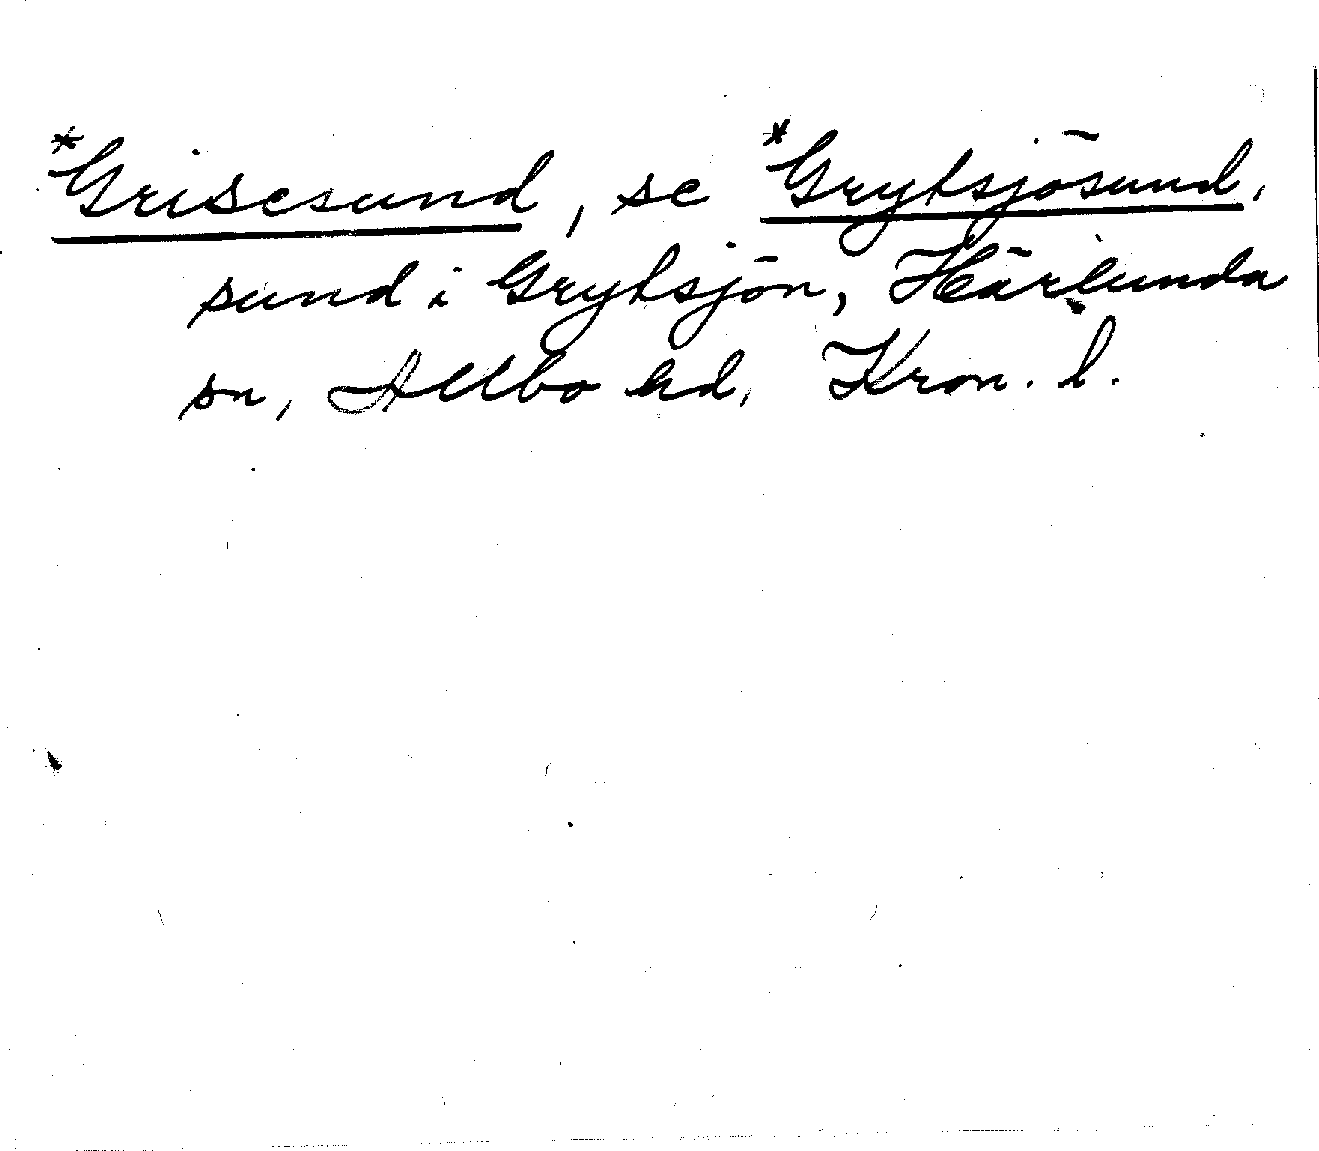 *Grisesund, se *Grytsjösund,
sund i Grytsjön, Härlunda
sn, Allbo hd, Kron. l.